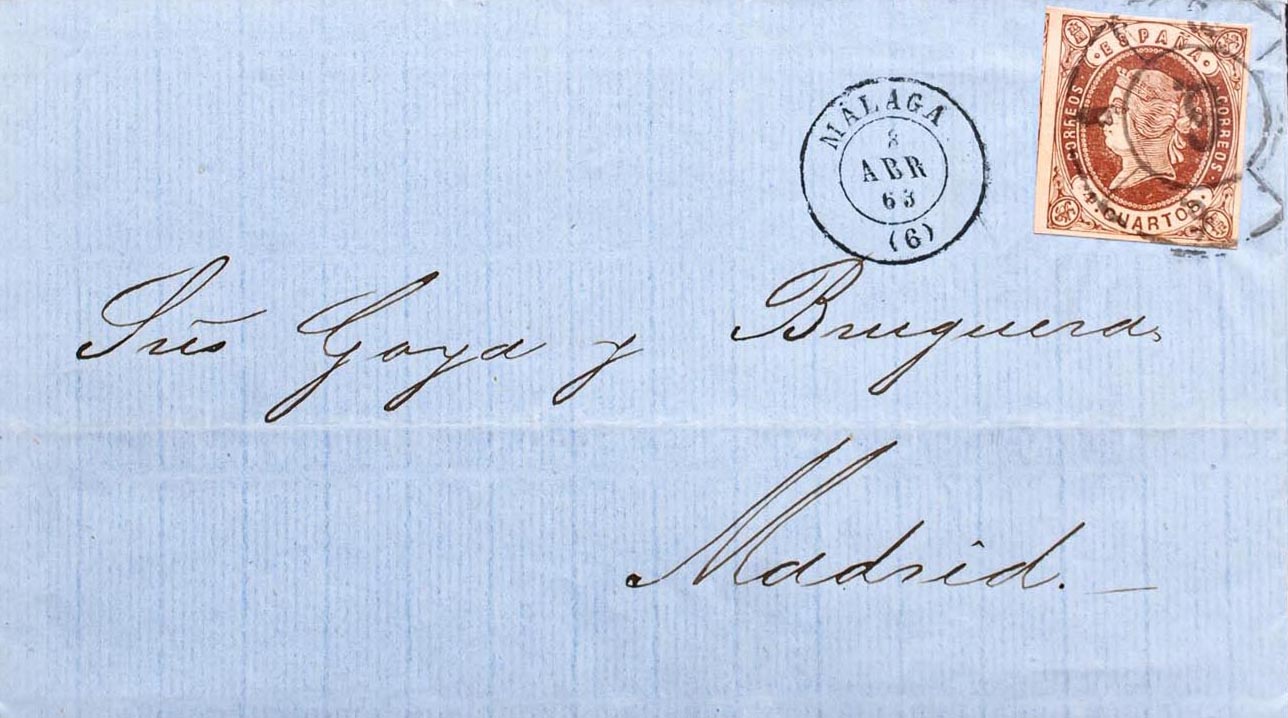 MÁLAGA
8
ABR
63
(6)
·ESPAÑA·
CORREOS
CORREOS
4. CUARTOS.
Sres Goya y Bruguera,
Madrid.